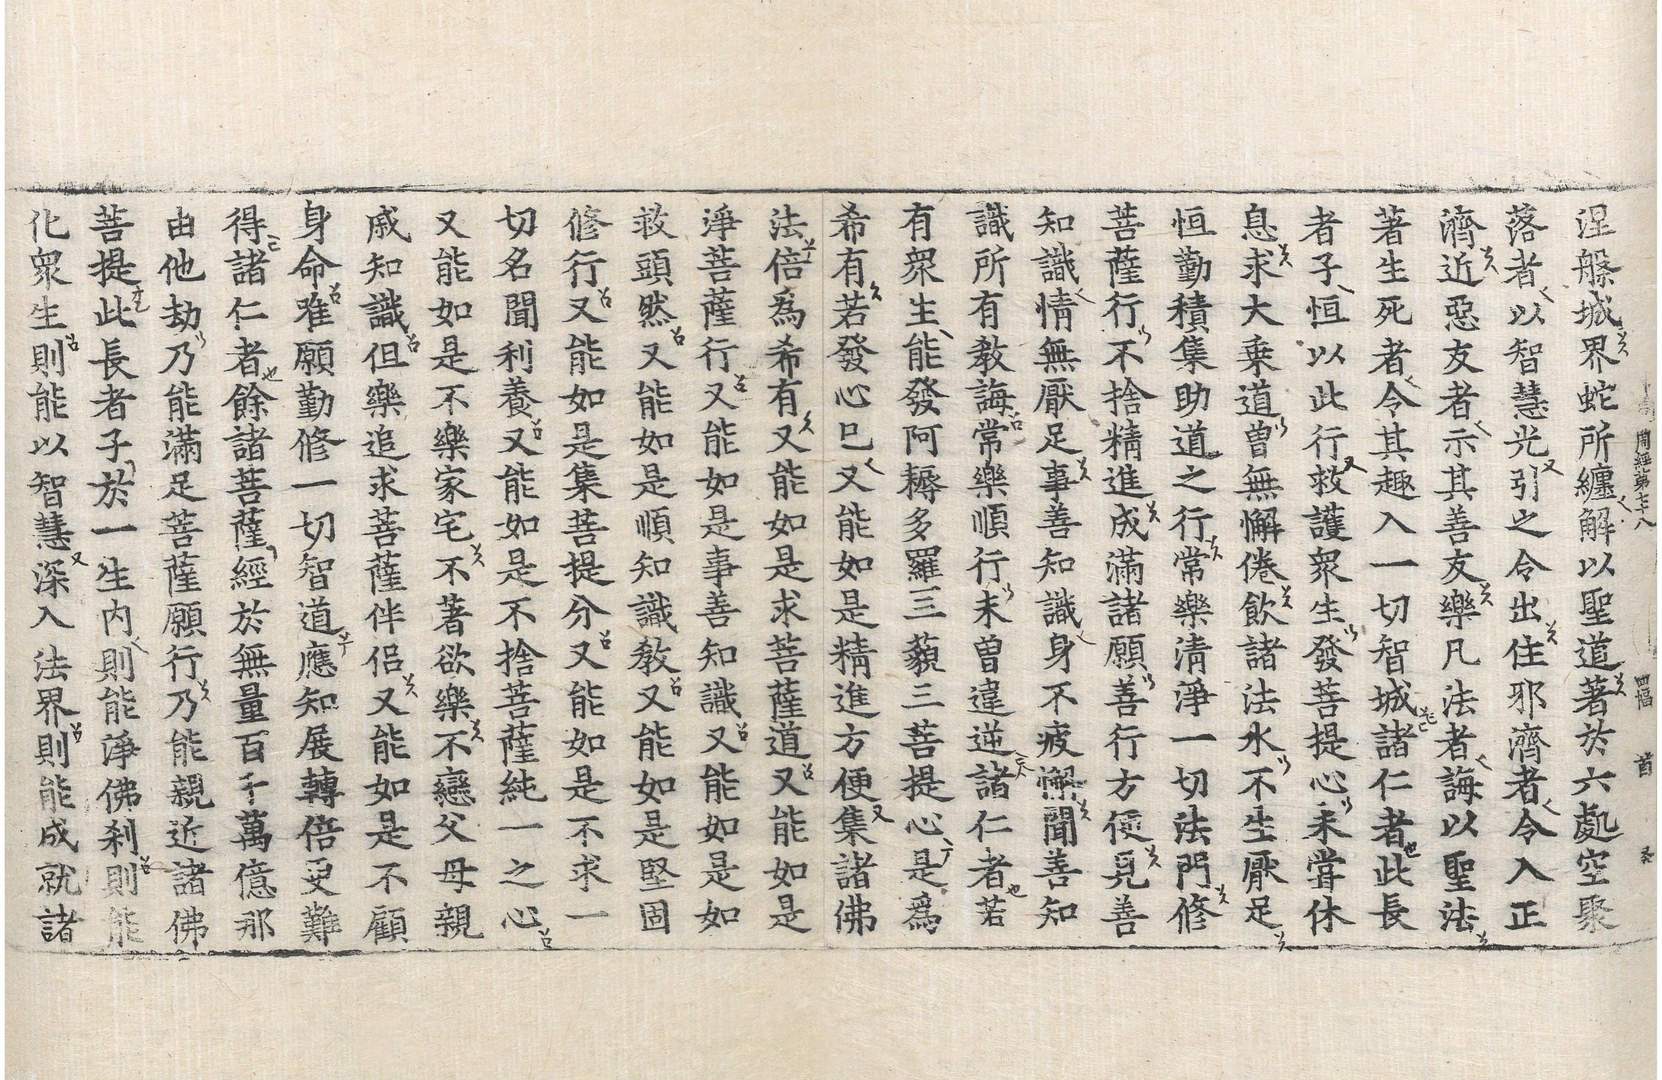 涅槃城界蛇所纏解以聖道著於六處空聚
落者以智慧光引之令出住邪濟者令入正
濟近惡友者示其善友樂凡法者誨以聖法
著生死者令其趣入一切智城諸仁者此長
者子恒以此行救護衆生發菩提心未甞休
息求大乗道曽無懈倦飲諸法水不生厭足
恒勤積集助道之行常樂清淨一切法門修
菩薩行不捨精進成滿諸願善行方便覓善
知識情無厭足事善知識身不疲懈聞善知
識所有敎誨常樂順行未曽違逆諸仁者若
有衆生能發阿耨多羅三藐三菩提心是爲
希有若發心已又能如是精進方便集諸佛
法倍爲希有又能如是求菩薩道又能如是
淨菩薩行又能如是事善知識又能如是如
救頭然又能如是順知識敎又能如是堅固
修行又能如是集菩提分又能如是不求一
切名聞利養又能如是不捨菩薩純一之心
又能如是不樂家宅不著欲樂不戀父母親
戚知識但樂追求菩薩伴侣又能如是不顧
身命唯願勤修一切智道應知展轉倍更難
得諸仁者餘諸菩薩經於無量百千萬億那
由他劫乃能滿足菩薩願行乃能親近諸佛
菩提此長者子於一生内則能淨佛刹則能
化衆生則能以智慧深入法界則能成就諸